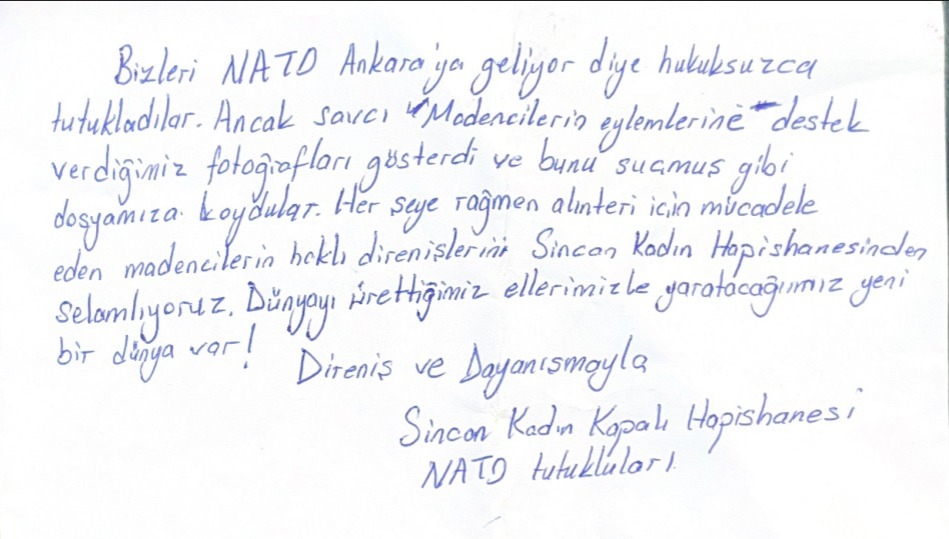 Bizleri NATO Ankara'ya geliyor diye hukuksuzca
tutukladılar. Ancak savcı "Madencilerin eylemlerine" destek
verdiğimiz fotoğrafları gösterdi ve bunu suçmuş gibi
dosyamıza koydular. Her şeye rağmen alınteri için mücadele
eden madencilerin haklı direnişlerini Sincan Kadın Hapishanesinden
selamlıyoruz. Dünyayı ürettiğimiz ellerimizle yaratacağımız yeni
bir dünya var!
Direniş ve Dayanışmayla
Sincan Kadın Kapalı Hapishanesi
NATO tutukluları